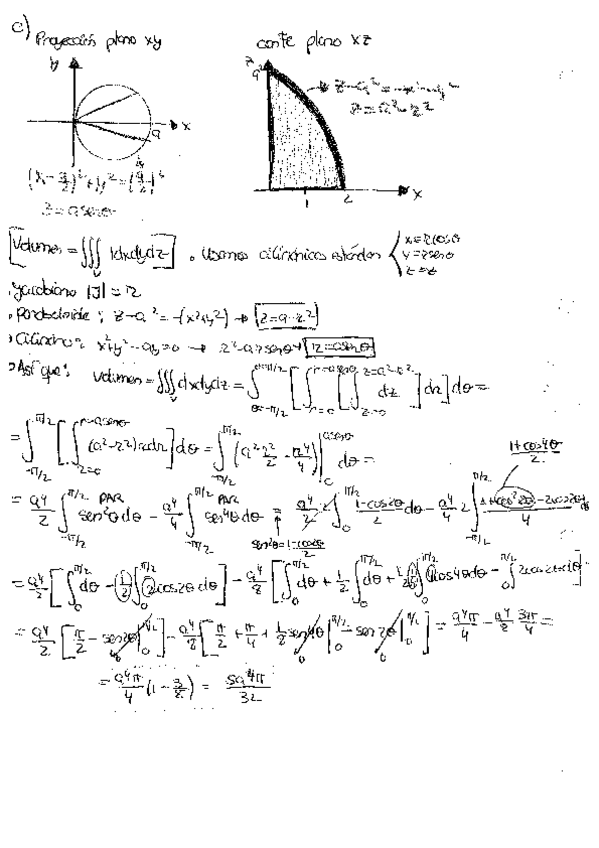 c) Proyección plano xy
corte plano xz
y
x
a
z
a²
z = a² - r²
x
1 2
(x - a/2)² + y² = (a/2)²
r = a senθ
[Volumen = ∭_V 1dxdydz] . Usamos cilíndricas estándar { x = r cosθ
y = r senθ
z = z
. Jacobiano |J| = r
. Paraboloide: z - a² = -(x²+y²) → z = a² - r²
. Cilindro: x² + y² - ay = 0 → r² - a r senθ → r = a senθ
. Así que: Volumen = ∭_V dxdydz = ∫_{θ=-π/2}^{θ=π/2} [ ∫_{r=0}^{r=a senθ} [ ∫_{z=0}^{z=a²-r²} dz ] dr ] dθ =
= ∫_{-π/2}^{π/2} [ ∫_{r=0}^{r=a senθ} (a²-r²) r dr ] dθ = ∫_{-π/2}^{π/2} (a² r²/2 - r⁴/4) |_0^{a senθ} dθ =
1+cos4θ/2
= a⁴/2 ∫_{-π/2}^{π/2} sen²θ dθ - a⁴/4 ∫_{-π/2}^{π/2} sen⁴θ dθ = a⁴/2 · 2 ∫_0^{π/2} 1-cos2θ/2 dθ - a⁴/4 2 ∫_{-π/2}^{π/2} 1+cos²2θ-2cos2θ/4 dθ
PAR PAR
sen²θ = 1-cos2θ/2
= a⁴/2 [ ∫_0^{π/2} dθ - (1/2) ∫_0^{π/2} 2cos2θ dθ ] - a⁴/8 [ ∫_0^{π/2} dθ + 1/2 ∫_0^{π/2} dθ + 1/8 ∫_0^{π/2} 4cos4θ dθ - ∫_0^{π/2} 2cos2θ dθ ] =
= a⁴/2 [ π/2 - sen2θ |_0^{π/2} ] - a⁴/8 [ π/2 + π/4 + 1/8 sen4θ |_0^{π/2} - sen2θ |_0^{π/2} ] = a⁴π/4 - a⁴/8 3π/4 =
= a⁴π/4 (1 - 3/8) = 5a⁴π/32